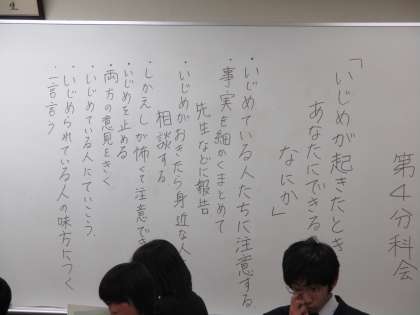 第4分科会
「いじめが起きたとき
あなたにできる
なにか」
・いじめている人たちに注意する
・事実を細かくまとめて
先生などに報告
・いじめがおきたら身近な人
相談する
・しかえしが怖くて注意でき
いじめを止める
・両方の意見をきく
・いじめている人にていこう
・いじめられている人の味方につく
・一言言う